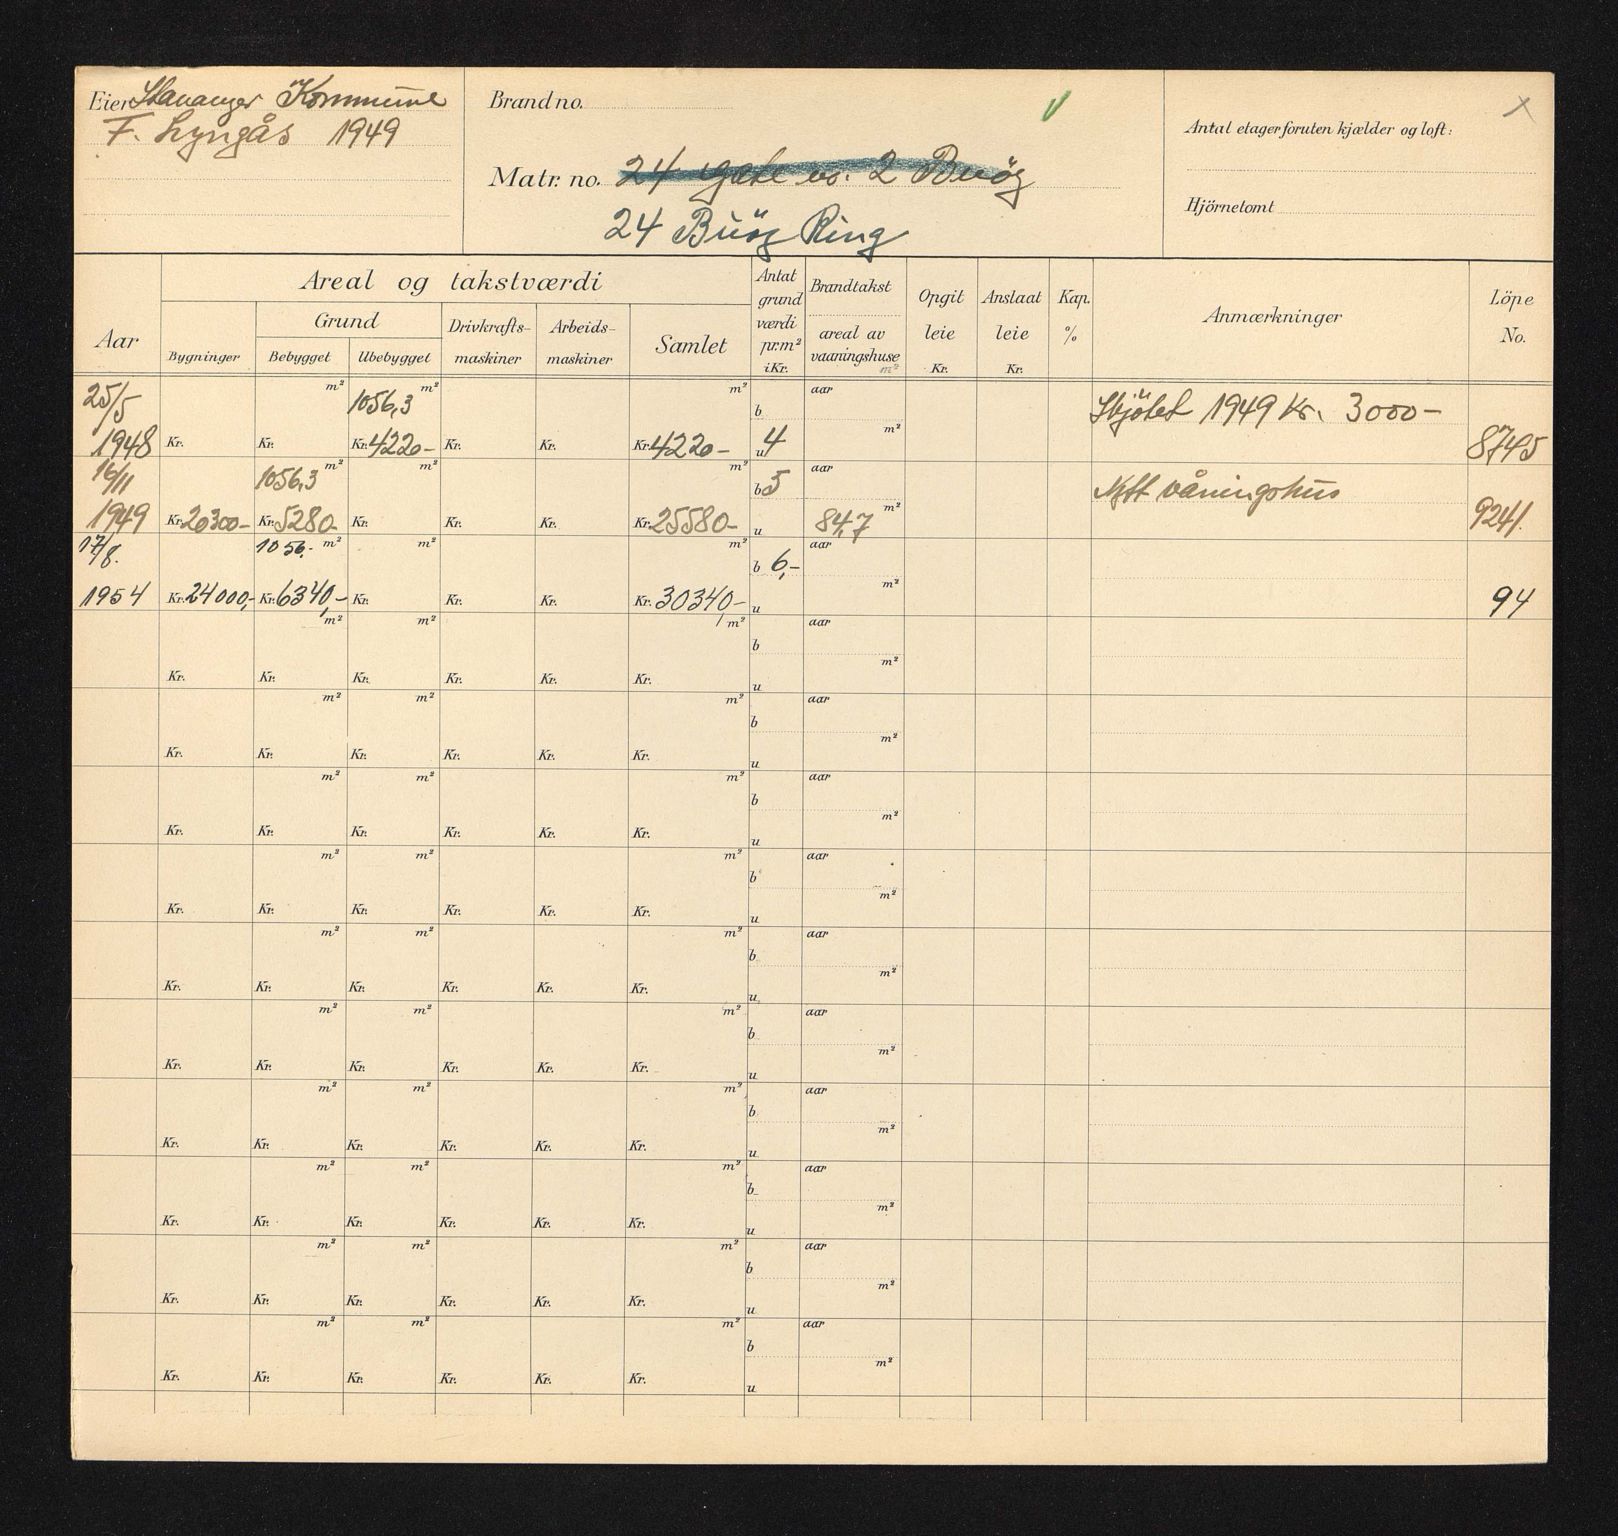 Eier Stavanger Kommune
F. Lyngås 1949
Brand no.
Matr. no. 24 gate no. 2 Buöy
24 Buöy Ring
Antal etager foruten kjælder og loft:
Hjörnetomt
Aar
Areal og takstværdi
Bygninger
Grund
Bebygget
Ubebygget
Drivkrafts-
maskiner
Arbeids-
maskiner
Samlet
Antat
grund
værdi
pr.m²
i Kr.
Brandtakst
areal av
vaaningshuse
m²
Opgit
leie
Kr.
Anslaat
leie
Kr.
Kap.
%
Anmærkninger
Löpe
No.
25/5 m² 1056,3 m² m² b aar Skjötet 1949 kr. 3000-
1948 Kr. Kr. Kr. 4220- Kr. Kr. Kr. 4220- u 4 m² 8745
16/11 1056,3 m² m² m² b 5 aar Nytt våningshus
1949 Kr. 20300- Kr. 5280- Kr. Kr. Kr. Kr. 25580- u 84,7 m² 9241.
17/8. 1056,- m² m² m² b 6,- aar
1954 Kr. 24000,- Kr. 6340,- Kr. Kr. Kr. Kr. 30340,- u m² 94
m² m² m² b aar
Kr. Kr. Kr. Kr. Kr. Kr. u m²
m² m² m² b aar
Kr. Kr. Kr. Kr. Kr. Kr. u m²
m² m² m² b aar
Kr. Kr. Kr. Kr. Kr. Kr. u m²
m² m² m² b aar
Kr. Kr. Kr. Kr. Kr. Kr. u m²
m² m² m² b aar
Kr. Kr. Kr. Kr. Kr. Kr. u m²
m² m² m² b aar
Kr. Kr. Kr. Kr. Kr. Kr. u m²
m² m² m² b aar
Kr. Kr. Kr. Kr. Kr. Kr. u m²
m² m² m² b aar
Kr. Kr. Kr. Kr. Kr. Kr. u m²
m² m² m² b aar
Kr. Kr. Kr. Kr. Kr. Kr. u m²
m² m² m² b aar
Kr. Kr. Kr. Kr. Kr. Kr. u m²